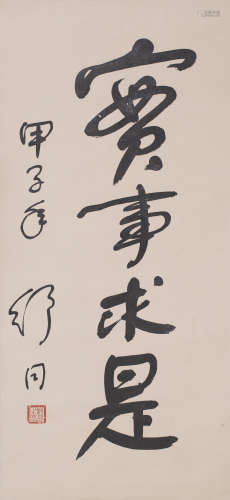 實事求是
甲子年
舒同